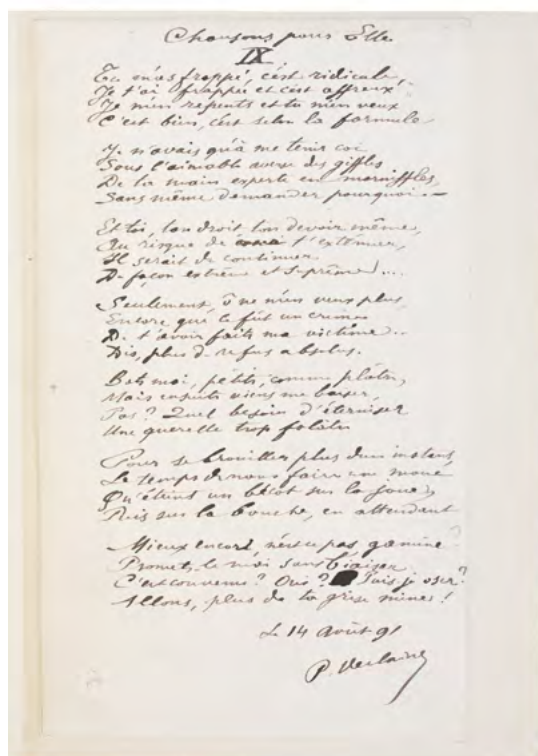 Chansons pour Elle
IX
Tu m'as frappé, c'est ridicule,
Je t'ai frappée et c'est affreux :
Je m'en repents et tu m'en veux
C'est bien, c'est selon la formule.
Je n'avais qu'à me tenir coi
Sous l'aimable averse des giffles
De ta main experte en morniffles,
Sans même demander pourquoi. —
Et toi, ton droit, ton devoir même,
Au risque de t'exténuer,
Il serait de continuer
De façon extrême et suprême....
Seulement, ô ne m'en veux plus,
Encore que ce fût un crime
De t'avoir faite ma victime...
Dis, plus de refus absolus.
Bats moi, petite, comme plâtre,
Mais ensuite viens me baiser,
Pas ? Quel besoin d'éterniser
Une querelle trop folâtre
Pour se brouiller plus d'un instant,
Le temps de nous faire une moue
Qu'éteint un bécot sur la joue,
Puis sur la bouche, en attendant
Mieux encor, n'est ce pas, gamine
Promets le moi sans biaiser
C'est convenu ? Oui ? Puis-je oser ?
Allons, plus de ta grise mine !
Le 14 Août 91
P. Verlaine